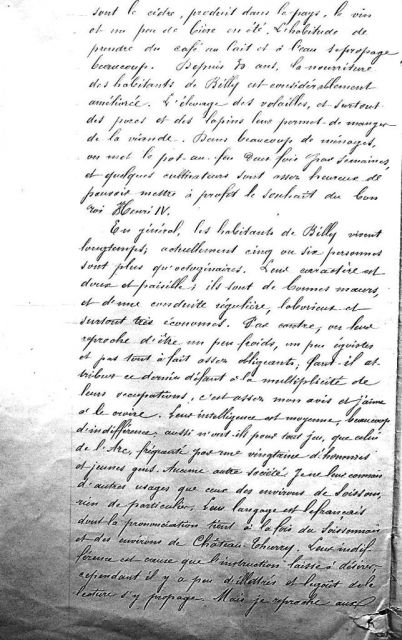 sont le cidre, produit dans le pays, le vin
et un peu de bière en été. L'habitude de
prendre du café au lait et à l'eau se propage
beaucoup. Depuis 30 ans, la nourriture
des habitants de Billy est considérablement
améliorée. L'élevage des volailles, et surtout
des porcs et des lapins leur permet de manger
de la viande. Dans beaucoup de ménages,
on met le pot-au-feu deux fois par semaines,
et quelques cultivateurs sont assez heureux de
pouvoir mettre à profit le souhait du bon
roi Henri IV.
En général, les habitants de Billy vivent
longtemps; actuellement cinq ou six personnes
sont plus qu'octogénaires. Leur caractère est
doux et paisible; ils sont de bonnes mœurs,
et d'une conduite régulière, laborieux et
surtout très économes. Par contre, on leur
reproche d'être un peu froids, un peu égoïstes
et pas tout à fait assez obligeants; faut-il at-
tribuer ce dernier défaut à la multiplicité de
leurs occupations, c'est assez mon avis et j'aime
à le croire. Leur intelligence est moyenne, beaucoup
d'indifférence, aussi n'voit-ils pour tout jeu, que celui
de l'Arc, fréquenté par une vingtaine d'hommes
et jeunes gens. Aucune autre société. Je ne leur connais
d'autres usages que ceux des environs de Soissons,
rien de particulier. Leur langage est le français
dont la prononciation tient à la fois du Soissonnais
et des environs de Château-Thierry. Leur indif-
férence est cause que l'instruction laisse à désirer,
cependant il y a peu d'illettrés et le goût de la
lecture s'y propage. Mais je reproche aux